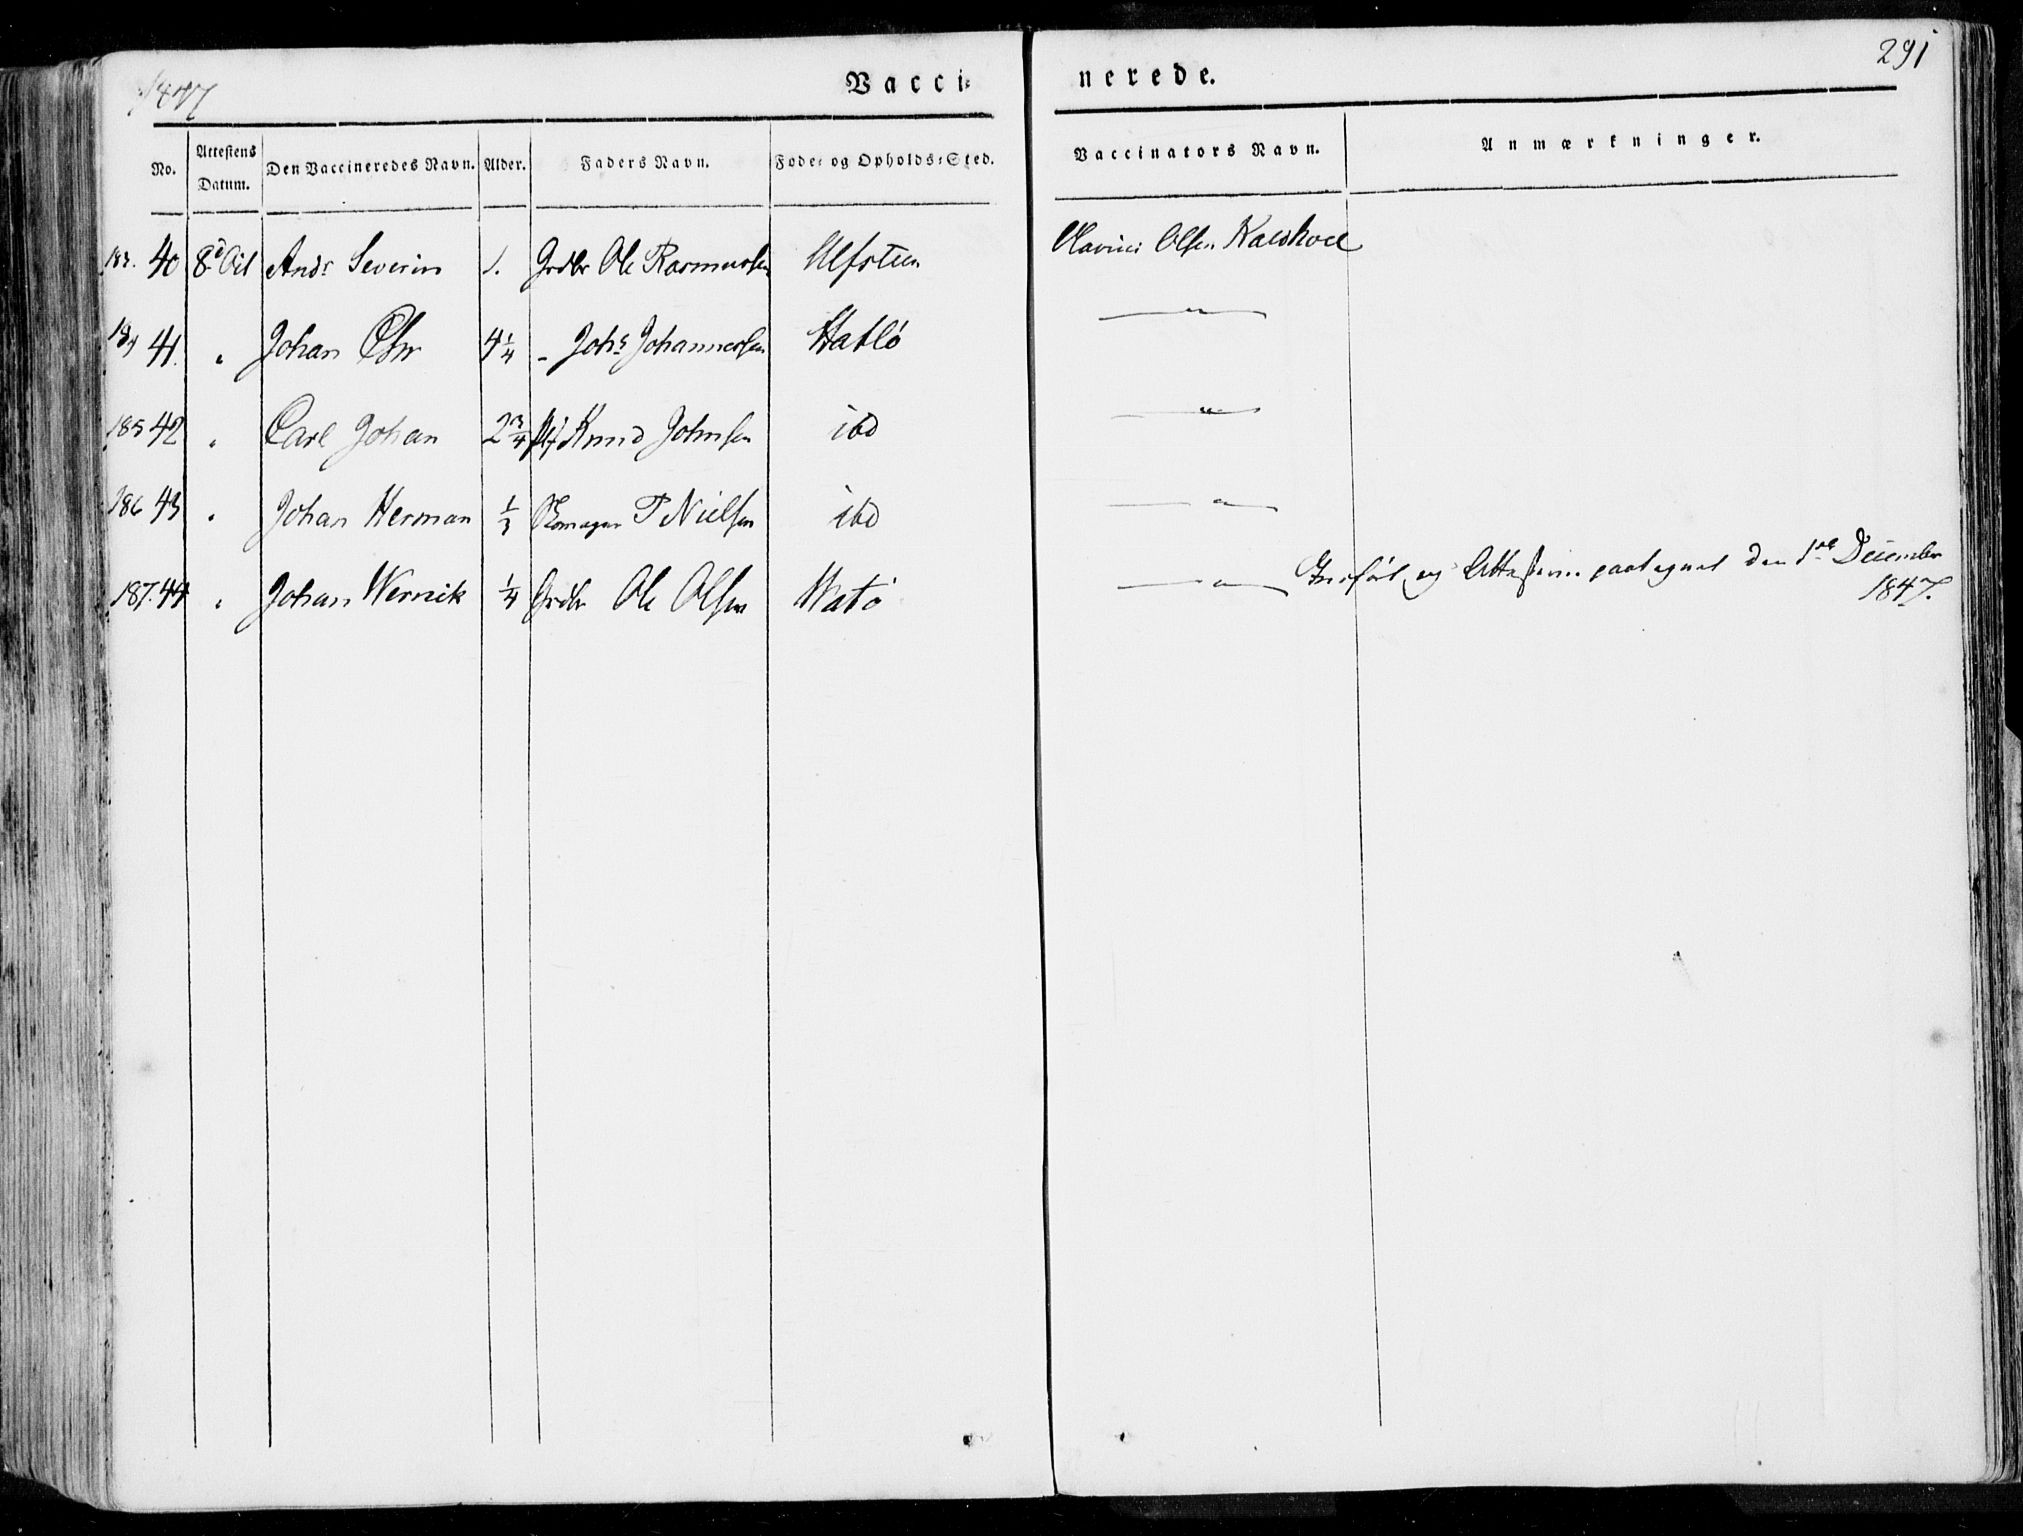 1847
Vacci-
nerede.
291
No. Attestens Datum. Den Vaccineredes Navn. Alder. Faders Navn. Føde- og Opholds-Sted. Vaccinators Navn. Anmærkninger.
183. 40 8d Ands Severin 1. Grdbr Ole Rasmussen Ulfsteen Olsen
184 41. " Johan Chr 4 1/4 - Johs Johannessen Hatlø — " —
185 42 " Carl Johan 2 3/4 Knud Johnsen ibd — " —
186 43 " Johan Herman 1/3 P Nielsen ibd — " —
187. 44 " Johan Wernik 1/4 Grdbr Ole Olsen Hatø — " — Indført og Attesterne paategnet den 1ste December
1847.